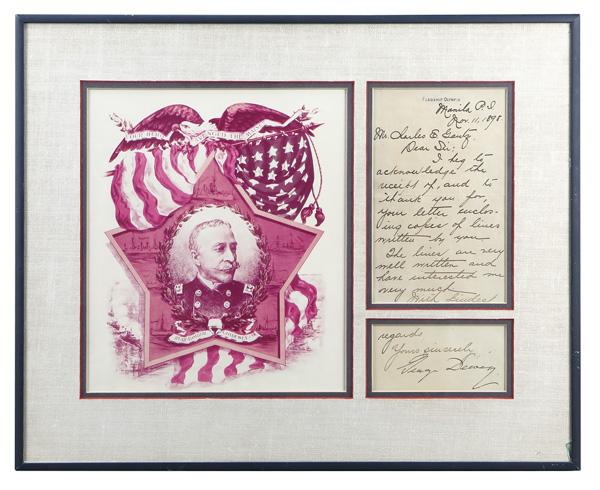 FLAGSHIP OLYMPIA
Manila P.I.
Nov. 11, 1898.
Mr. Charles E
Dear Sir;
I beg to
acknowledge the
receipt of, and to
thank you for,
your letter enclos-
ing copies of lines
written by you
The lines are very
well written and
have interested me
very much
With kindest
regards
Yours sincerely,
George Dewey